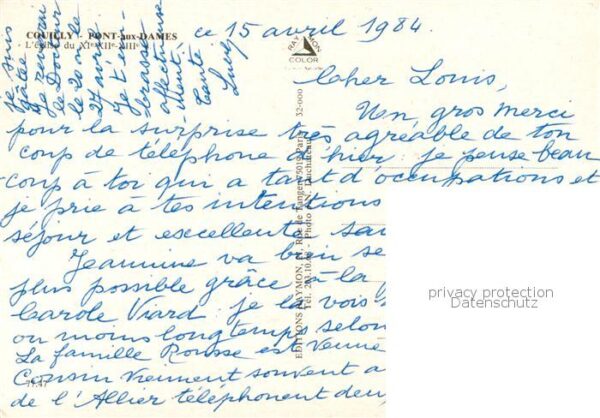 COUILLY - PONT-aux-DAMES
L'église du XIe-XIIe-XIIIe
ce 15 avril 1984.
RAYMON
COLOR
Cher Louis,
Un gros merci
pour la surprise très agréable de ton
coup de téléphone d'hier : je pense beau-
coup à toi qui a tant d'occupations et
je prie à tes intentions
séjour et excellente
Jeannine va bien se
plus possible grâce à la
Carole Viard : je la vois
ou moins longtemps selon
La famille Rousse est venue
Cousin viennent souvent
de l'Allier téléphonent
je suis
gâtée
le Docteur
le 20 ou le
27 avril.
Je t'em-
brasse
affectueuse-
ment.
Tante
EDITIONS RAYMON, Rue de Tanger 75019 Paris
Tél. - Photo
32-000
privacy protection
Datenschutz